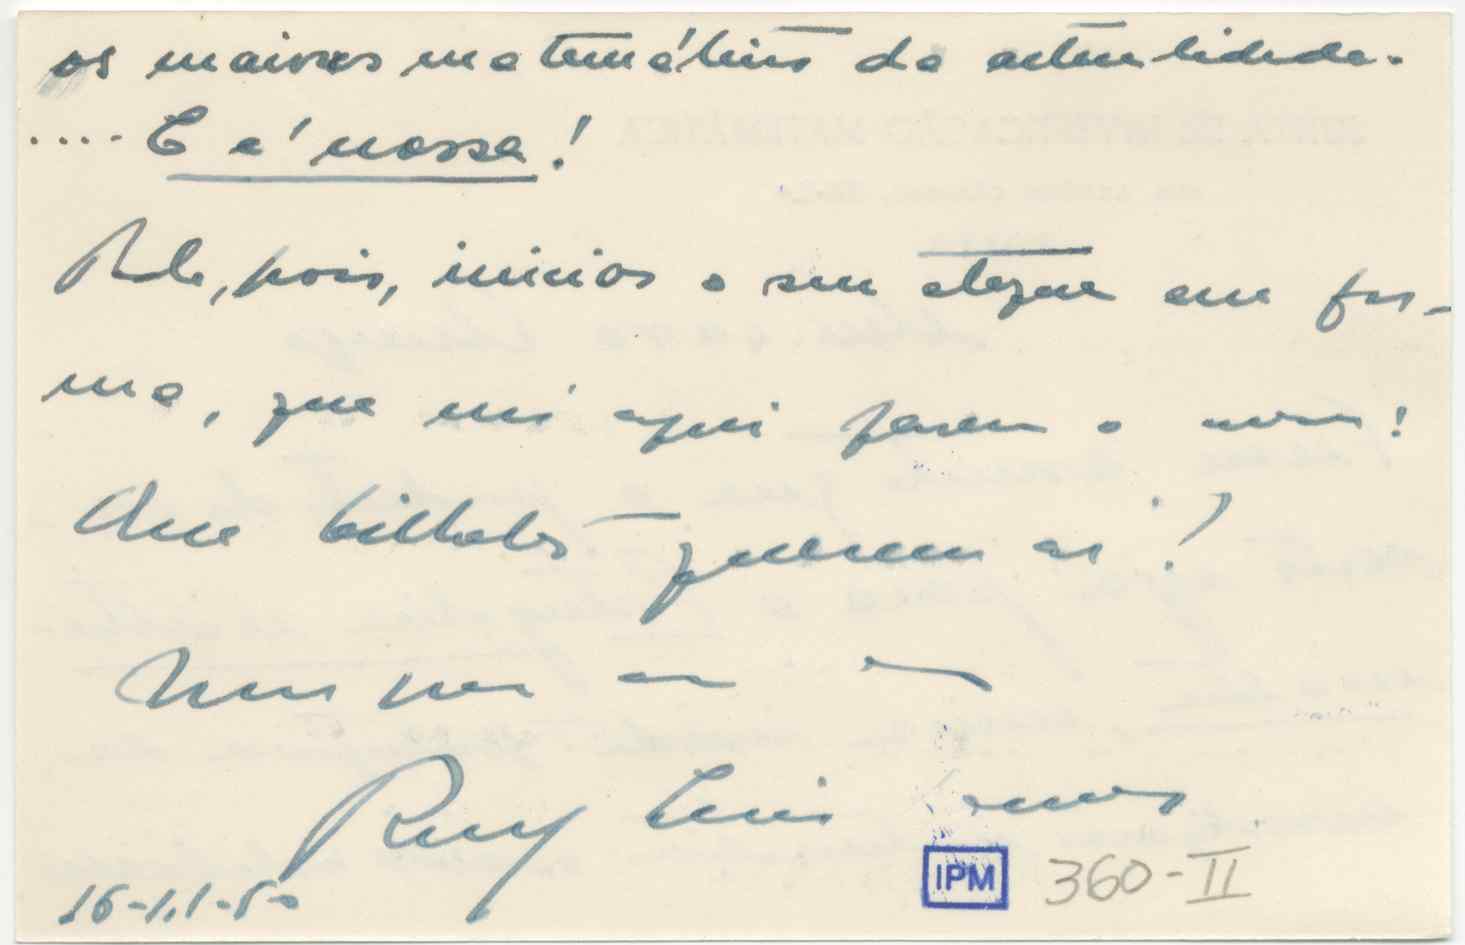 os maiores matemáticos da actualidade.
.... E é nossa!
Pode, pois, iniciar o seu ataque em for-
ma, que nós aqui fazem o
Que bilhetes querem aí?
um
Ruy Luís Gomes
16-1.1-50
IPM 360-II